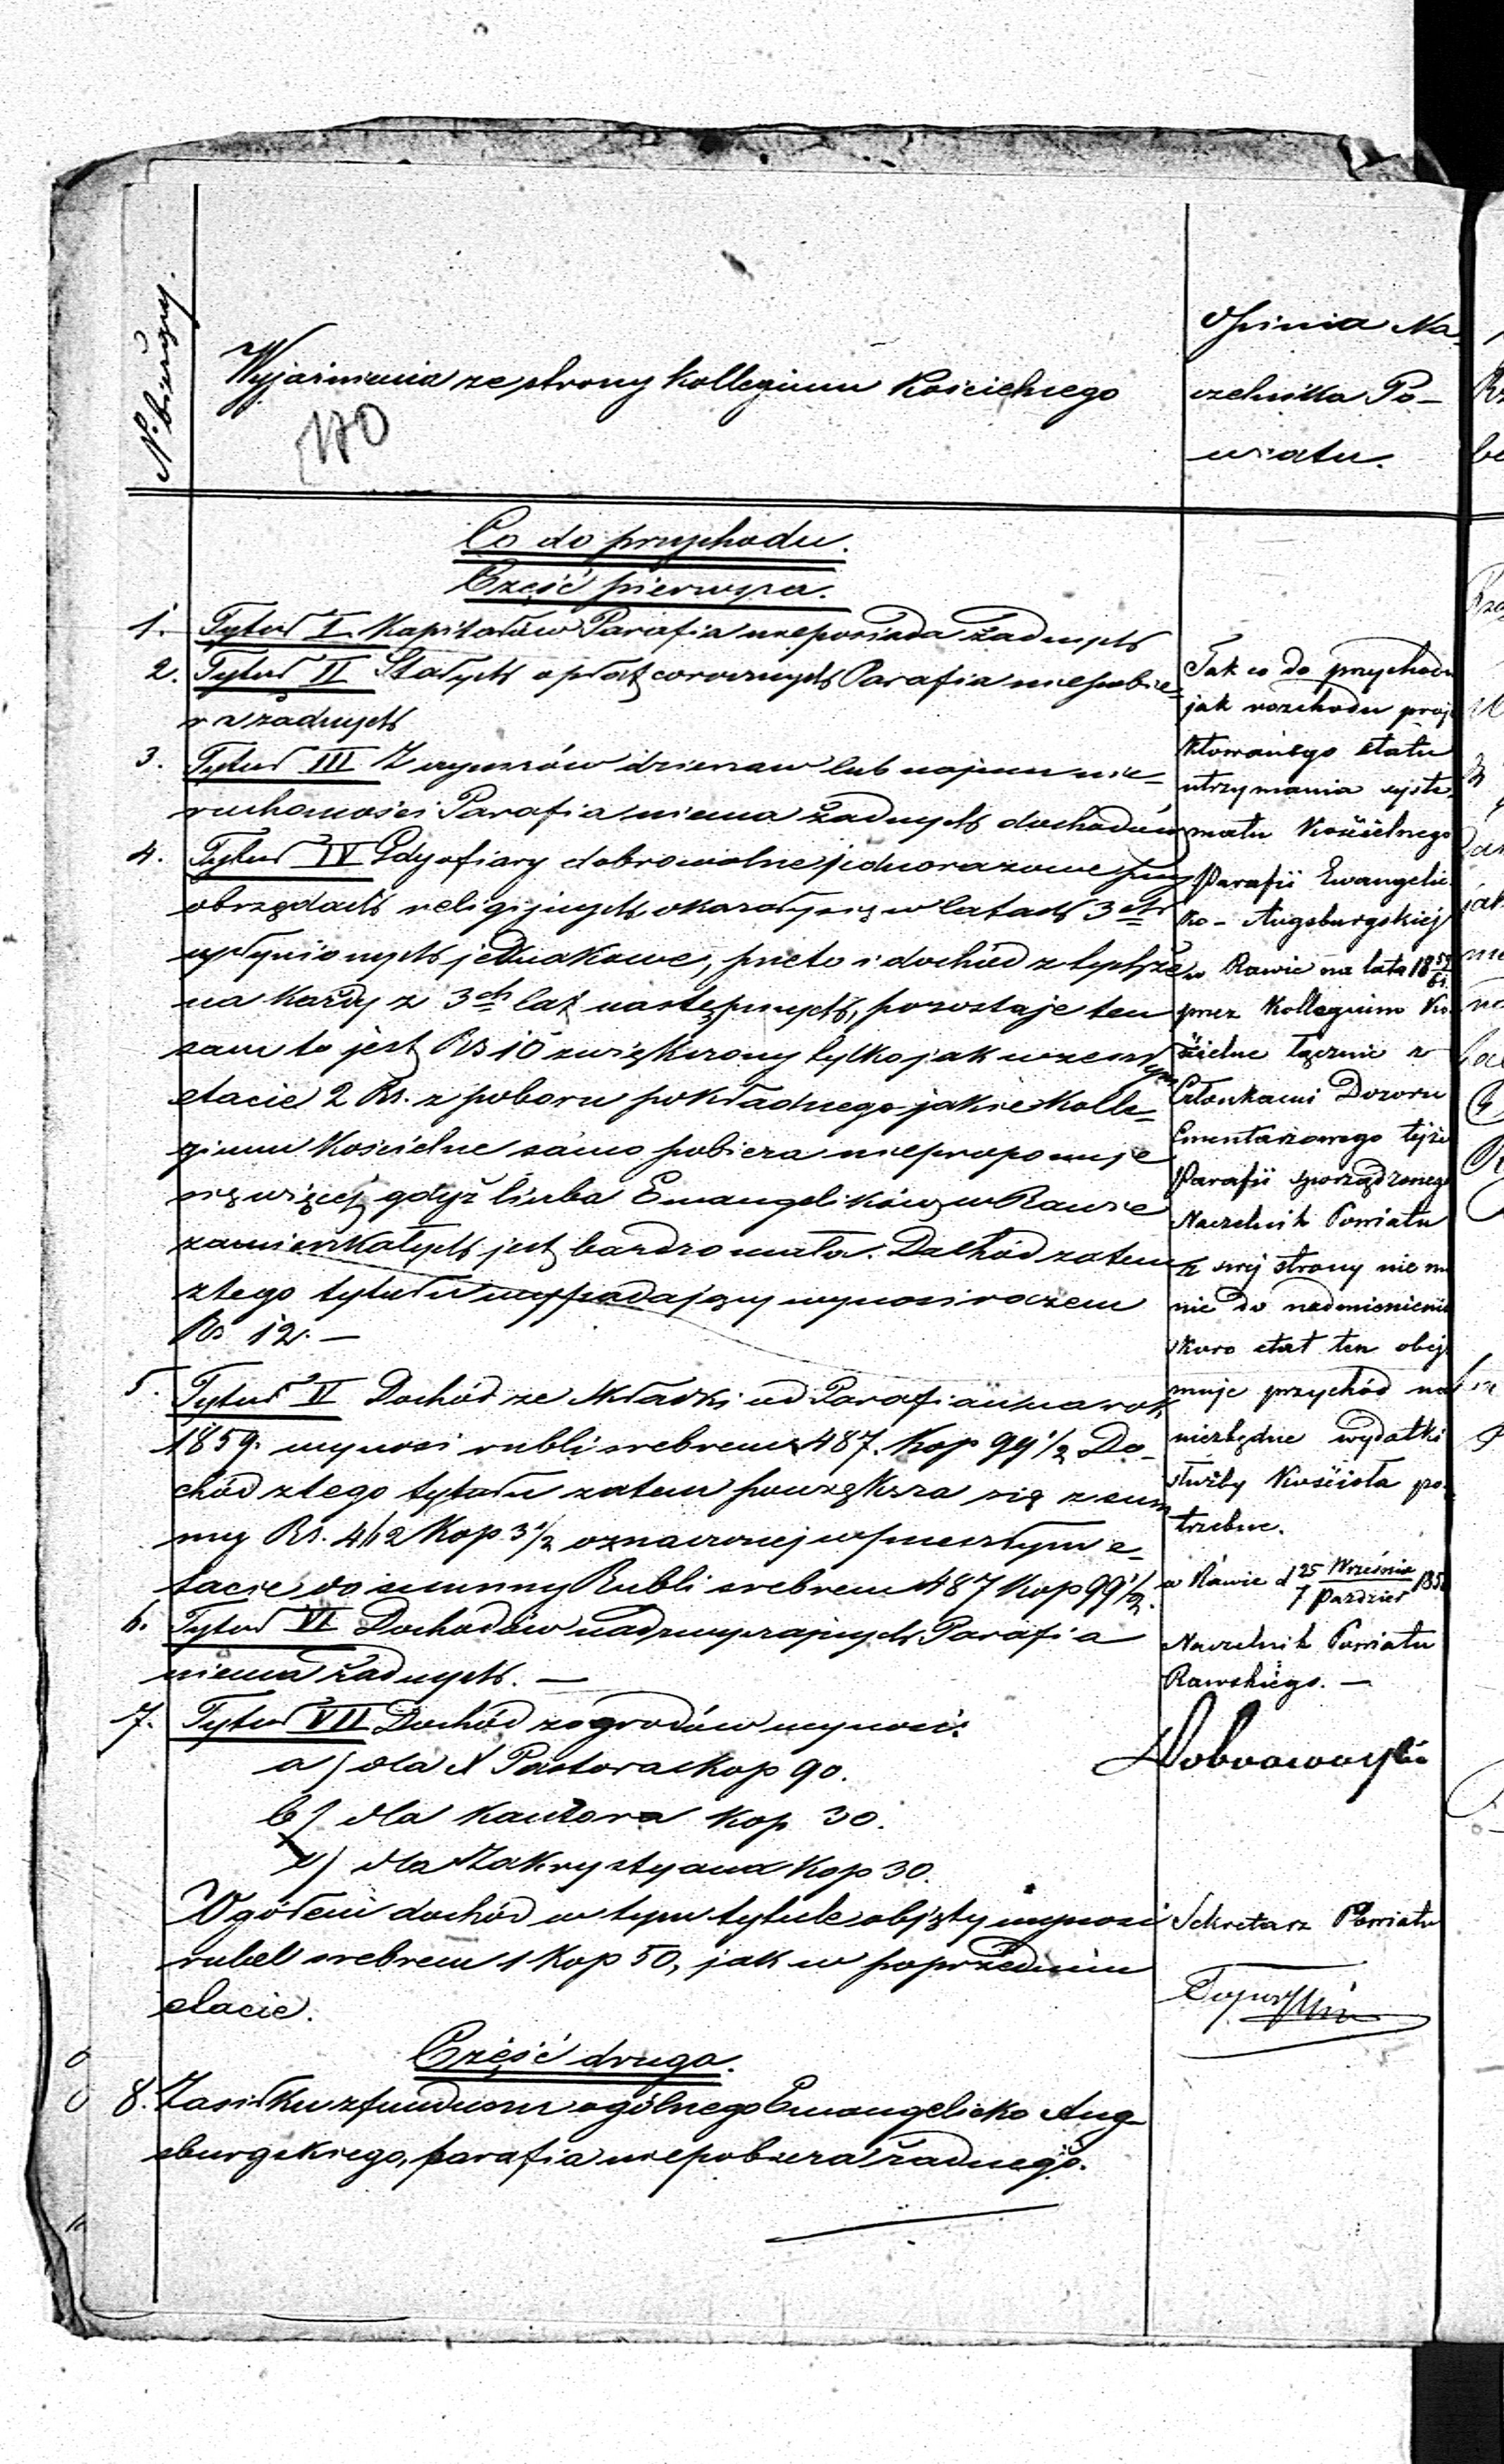 N. bieżący.
Wyjaśnienia ze strony Kollegium Kościelnego
170
Opinia Na-
czelnika Po-
wiatu.
Co do przychodu.
Część pierwsza.
1. Tytuł I. Kapitałów Parafia nieposiada żadnych
2. Tytuł II Stałych opłat corocznych Parafia niepobie-
ra żadnych
3. Tytuł III Z czynszów dzierżaw lub najmu nie-
ruchomości Parafia niema żadnych dochodów
4. Tytuł IV Gdy ofiary dobrowolne jednorazowe przy
obrzędach religijnych okazały się w latach 3ch
upłynionych jednakowe, przeto i dochód z tychże
na każdy z 3ch lat następnych, pozostaje ten
sam to jest Rs 10 zwiększony tylko jak w zeszłym
etacie 2 Rs. z poboru pokładnego jakie Kolle-
gium Kościelne samo pobiera nieproponuje
się więcej gdyż liczba Ewangelików w Rawie
zamieszkałych jest bardzo mała. Dochód zatem
z tego tytułu wypadający wynosi razem
Rs 12. —
5. Tytuł V Dochód ze składki od Parafian na rok
1859. wynosi rubli srebrem 487. Kop 99 1/2 Do-
chód z tego tytułu zatem powiększa się z sum
my Rs. 412 Kop 3 1/2 oznaczonej w przeszłym e-
tacie do summy Rubli srebrem 487 Kop 99 1/2.
6. Tytuł VI Dochodów nadzwyczajnych Parafia
niema żadnych. —
7. Tytuł VII Dochód z ogrodów wynosi:
a) dla X Pastora Kop 90.
b) dla Kantora Kop 30.
c) dla Zakrystyana Kop 30.
W ogóle dochód w tym tytule objęty wynosi
rubel srebrem 1 Kop 50, jak w poprzednim
etacie.
Część druga.
8. Zasiłku z funduszu ogólnego Ewangelicko Aug-
sburgskiego, parafia niepobiera żadnego.
Tak co do przychodu
jak rozchodu proje
ktowanego etatu
utrzymania syste-
matu Kościelnego
Parafii Ewangelic
ko - Augsburgskiej
w Rawie na lata 1859/61
przez Kollegium Ko
ścielne łącznie z
Członkami Dozoru
Cmentarzowego tejże
Parafii sporządzonego
Naczelnik Powiatu
z swej strony nie ma
nic do nadmienienia
skoro etat ten obej
muje przychód na
niezbędne wydatki
służby Kościoła po-
trzebne.
w Rawie d 25 Września / 7 Paździer 185
Naczelnik Powiatu
Rawskiego. —
Sekretarz Powiatu